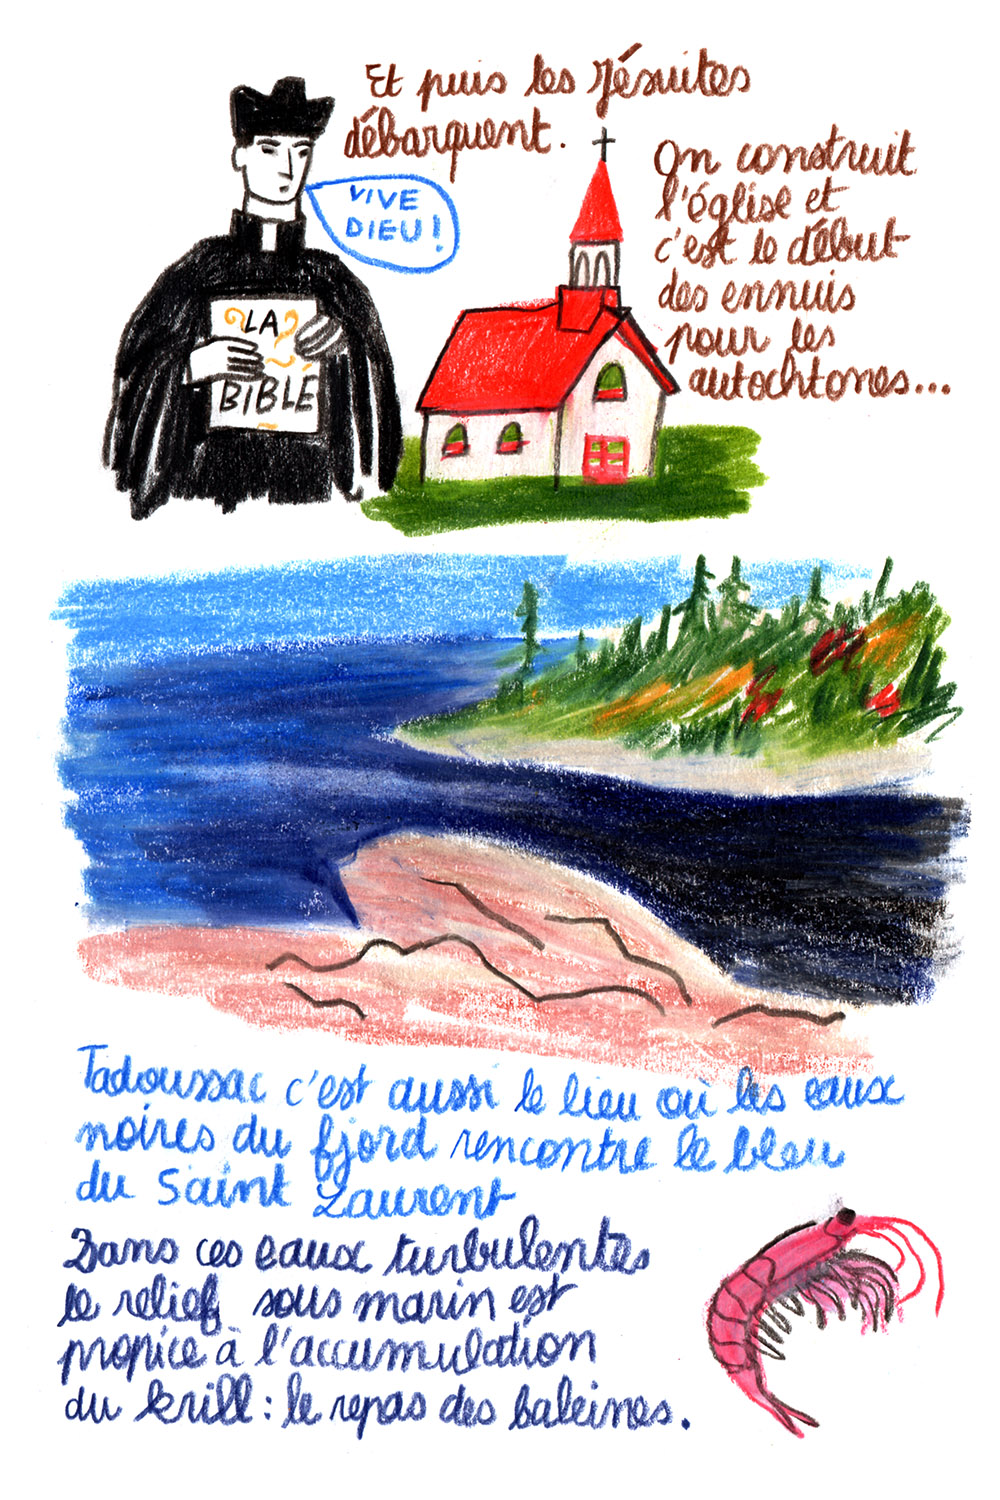 Et puis les Jésuites
débarquent.
VIVE
DIEU !
LA
BIBLE
On construit
l'église et
c'est le début
des ennuis
pour les
autochtones...
Tadoussac c'est aussi le lieu où les eaux
noires du fjord rencontre le bleu
du Saint Laurent
Dans ces eaux turbulentes
le relief sous marin est
propice à l'accumulation
du krill : le repas des baleines.